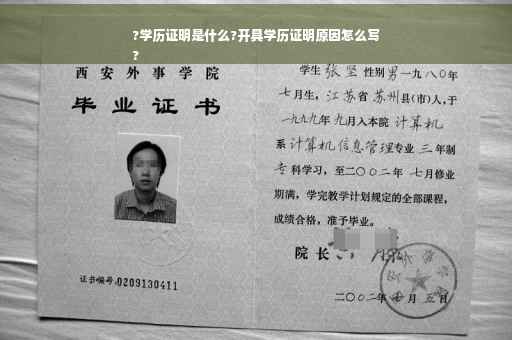 ?学历证明是什么?开具学历证明原因怎么写
?
西安外事学院
毕业证书
证书编号:0209130411
学生 张坚 性别 男 一九八〇年
七月生, 江苏省 苏州县(市)人,于
一九九九年 九月入本院 计算机
系 计算机信息管理专业 三 年制
专 科学习, 至二〇〇二年 七月修业
期满, 学完教学计划规定的全部课程,
成绩合格, 准予毕业。
院长
二〇〇二年 月 五日